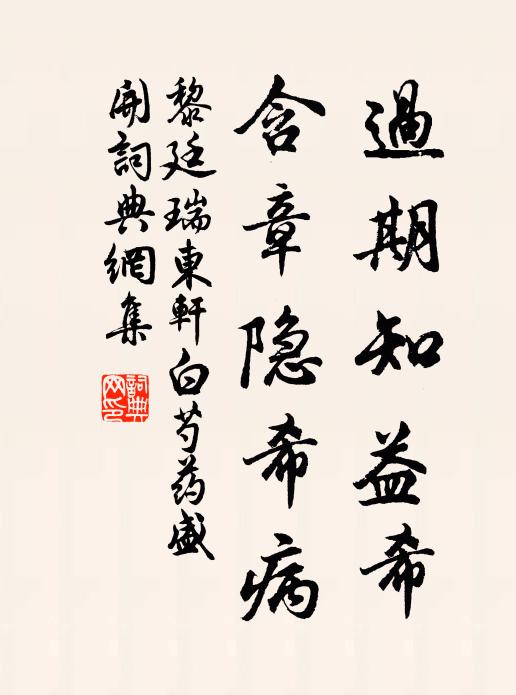 過期知益希
含章隐希病
黎廷瑞東軒白芍药盛
開詞典網集
詞典
网印